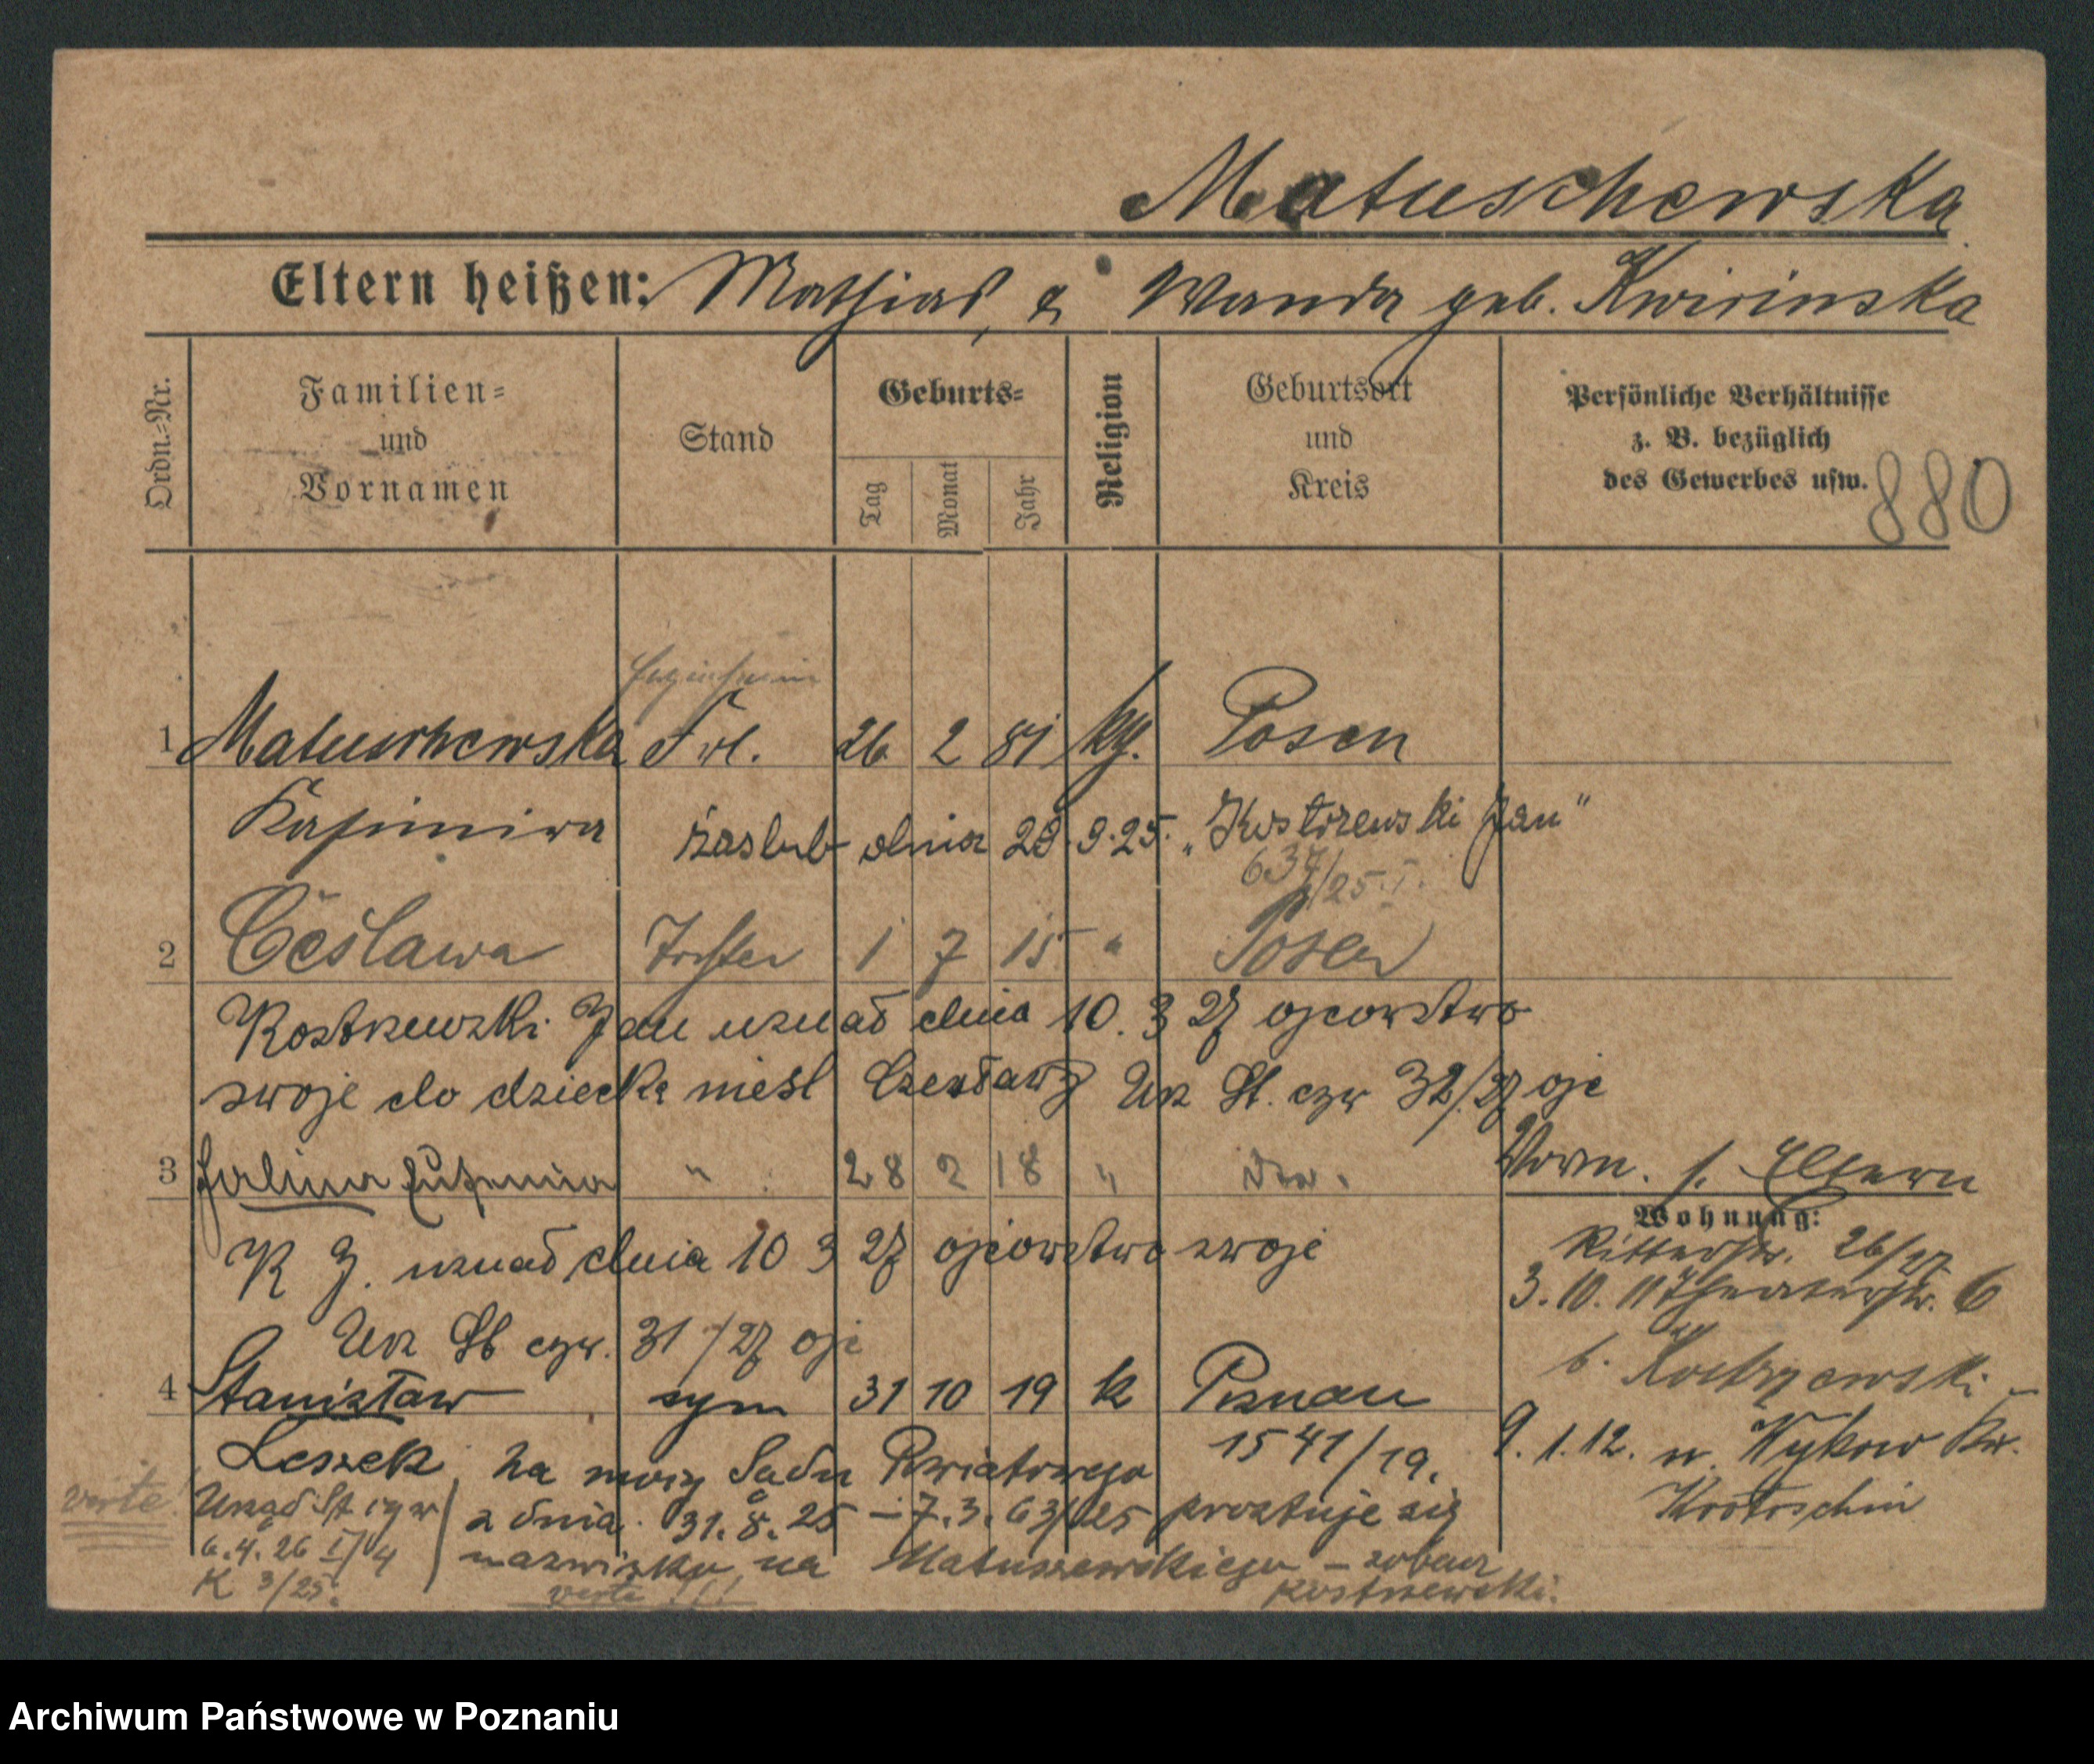 Matuschewska
Eltern heißen: Mathias & Wanda geb. Kwirinska
Ordn.-Nr.
Familien- und Vornamen
Stand
Geburts-
Tag
Monat
Jahr
Religion
Geburtsort und Kreis
Persönliche Verhältnisse z. B. bezüglich des Gewerbes usw.
880
1 Matuschewska Frl. 26 2 81 kg. Posen
Kasimira zaslub dnia 29.9.25. „Kostrzewski Jan"
637/25.I.
2 Česlawa Tochter 1 7 15 " Posen
Kostrzewski Jan uznał dnia 10. 3 27 ojcowstwo
swoje do dziecka nieśl Czesławy Urz St. czw 32/27 oje
3 Halina Eugenia " 28 2 18 "
Vorm. s. Eltern
K J. uznał dnia 10 3 27 ojcowstwo swoje
Urz St czw. 31/27 oje
Wohnung:
Ritterstr. 26/27
3.10.11 Theaterstr. 6
b. Kostrzewski
4 Stanisław syn 31 10 19 k Poznan
Leszek, na mocy Sadu Powiatowego 1541/19.
9.1.12. n. Wykow Kr.
Krotoschin
verte!
Urząd St cyw
z dnia 31.8.25 – 7.3.63/25 prostuje się
6.4.26 I/4
nazwisko na Matuszewskiego – zobacz
K 3/25.
verte!!!
Kostrzewski.
Archiwum Państwowe w Poznaniu